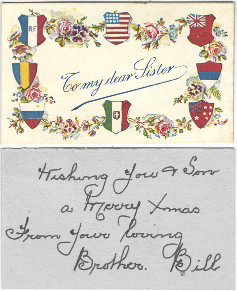 RF
To my dear Sister
Wishing You & Son
a Merry Xmas
From Your loving
Brother. Bill